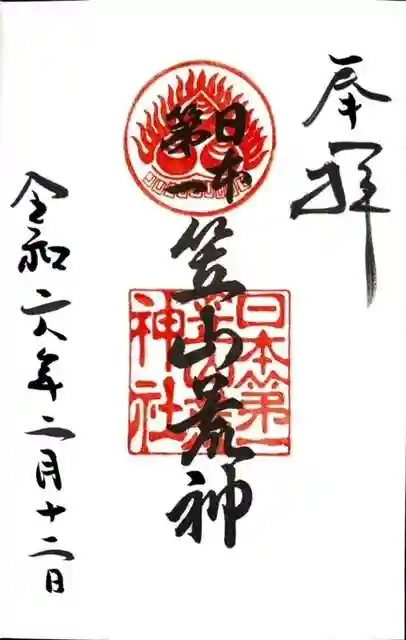 奉拝
日本第一
笠山荒神
日本第一
笠山荒
神社
令和六年二月十二日